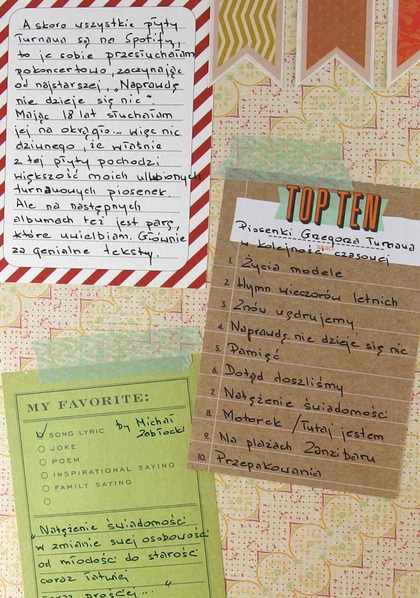 A skoro wszystkie płyty
Turnaua są na Spotify,
to je sobie przesłuchałam
pokoncertowo, zaczynając
od najstarszej, „Naprawdę
nie dzieje się nic".
Mając 18 lat słuchałam
jej na okrągło... więc nic
dziwnego, że właśnie
z tej płyty pochodzi
większość moich ulubionych
turnauowych piosenek.
Ale na następnych
albumach też jest parę,
które uwielbiam. Głównie
za genialne teksty.
TOP TEN
Piosenki Grzegorza Turnaua
w kolejności czasowej
1. Życia modele
2. Hymn wieczorów letnich
3. Znów wędrujemy
4. Naprawdę nie dzieje się nic
5. Pamięć
6. Dotąd doszliśmy
7. Natężenie świadomości
8. Motorek / Tutaj jestem
9. Na plażach Zanzibaru
10. Przepakowania
MY FAVORITE:
SONG LYRIC by Michał Zabłocki
JOKE
POEM
INSPIRATIONAL SAYING
FAMILY SAYING
„Natężenie świadomości
w zmianie swej osobowości
od młodości do starość
coraz łatwiej
coraz prościej..."